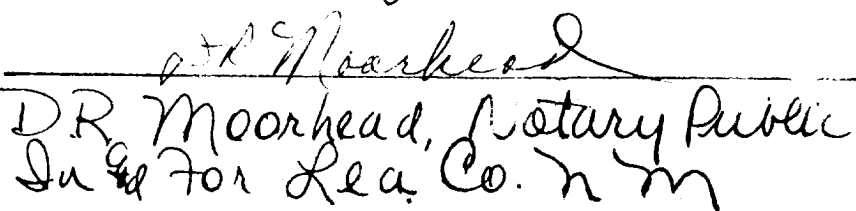 D R Moorhead
D.R. Moorhead, Notary Public
In and For Lea Co. N M